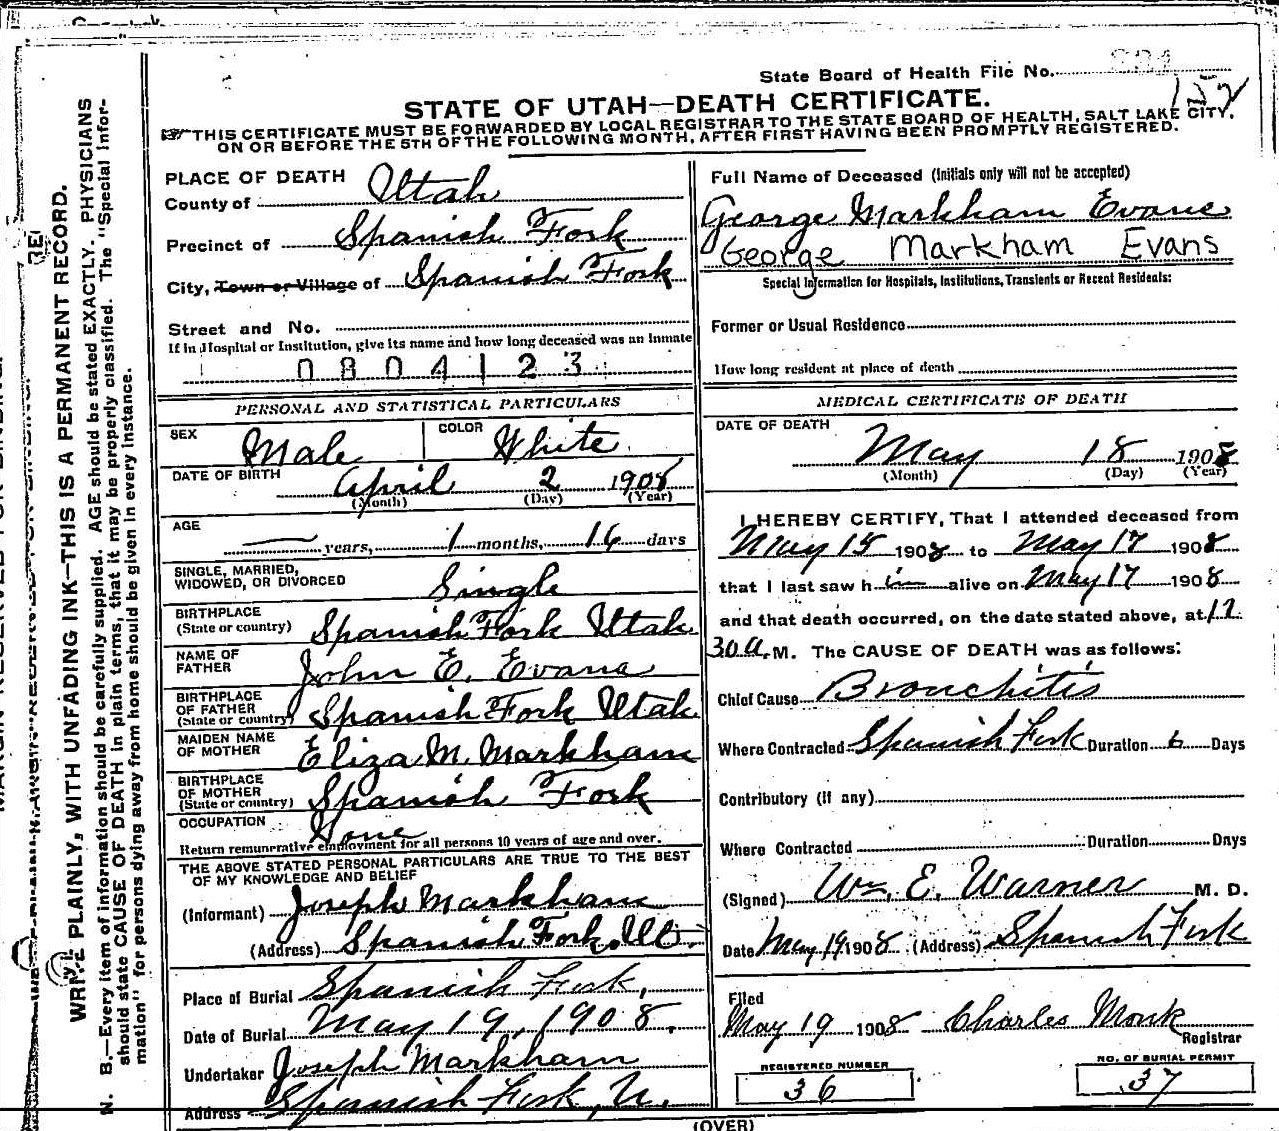 State Board of Health File No.
STATE OF UTAH—DEATH CERTIFICATE.
THIS CERTIFICATE MUST BE FORWARDED BY LOCAL REGISTRAR TO THE STATE BOARD OF HEALTH, SALT LAKE CITY,
ON OR BEFORE THE 5TH OF THE FOLLOWING MONTH, AFTER FIRST HAVING BEEN PROMPTLY REGISTERED.
WRITE PLAINLY, WITH UNFADING INK—THIS IS A PERMANENT RECORD.
N. B.—Every item of information should be carefully supplied. AGE should be stated EXACTLY. PHYSICIANS
should state CAUSE OF DEATH in plain terms, that it may be properly classified. The "Special Infor-
mation" for persons dying away from home should be given in every instance.
PLACE OF DEATH
County of Utah
Precinct of Spanish Fork
City, Town or Village of Spanish Fork
Street and No.
If in Hospital or Institution, give its name and how long deceased was an Inmate
0804123
PERSONAL AND STATISTICAL PARTICULARS
SEX Male COLOR White
DATE OF BIRTH April 2 1908
(Month) (Day) (Year)
AGE — years, 1 months, 16 days
SINGLE, MARRIED,
WIDOWED, OR DIVORCED Single
BIRTHPLACE
(State or country) Spanish Fork Utah
NAME OF
FATHER John E. Evans
BIRTHPLACE
OF FATHER
(State or country) Spanish Fork Utah
MAIDEN NAME
OF MOTHER Eliza M. Markham
BIRTHPLACE
OF MOTHER
(State or country) Spanish Fork
OCCUPATION None
Return remunerative employment for all persons 10 years of age and over.
THE ABOVE STATED PERSONAL PARTICULARS ARE TRUE TO THE BEST
OF MY KNOWLEDGE AND BELIEF
(Informant) Joseph Markham
(Address) Spanish Fork, Ut.
Place of Burial Spanish Fork,
Date of Burial May 19, 1908.
Undertaker Joseph Markham
Address Spanish Fork, U.
Full Name of Deceased (Initials only will not be accepted)
George Markham Evans
George Markham Evans
Special Information for Hospitals, Institutions, Transients or Recent Residents:
Former or Usual Residence
How long resident at place of death
MEDICAL CERTIFICATE OF DEATH
DATE OF DEATH
May 18 1908
(Month) (Day) (Year)
I HEREBY CERTIFY, That I attended deceased from
May 15 1908 to May 17 1908
that I last saw him alive on May 17 1908
and that death occurred, on the date stated above, at 12
30 a. M. The CAUSE OF DEATH was as follows:
Chief Cause Bronchitis
Where Contracted Spanish Fork Duration 6 Days
Contributory (if any)
Where Contracted Duration Days
(Signed) Wm. E. Warner M. D.
Date May 19 1908 (Address) Spanish Fork
Filed
May 19 1908 Charles Monk
Registrar
REGISTERED NUMBER
36
NO. OF BURIAL PERMIT
37
(OVER)